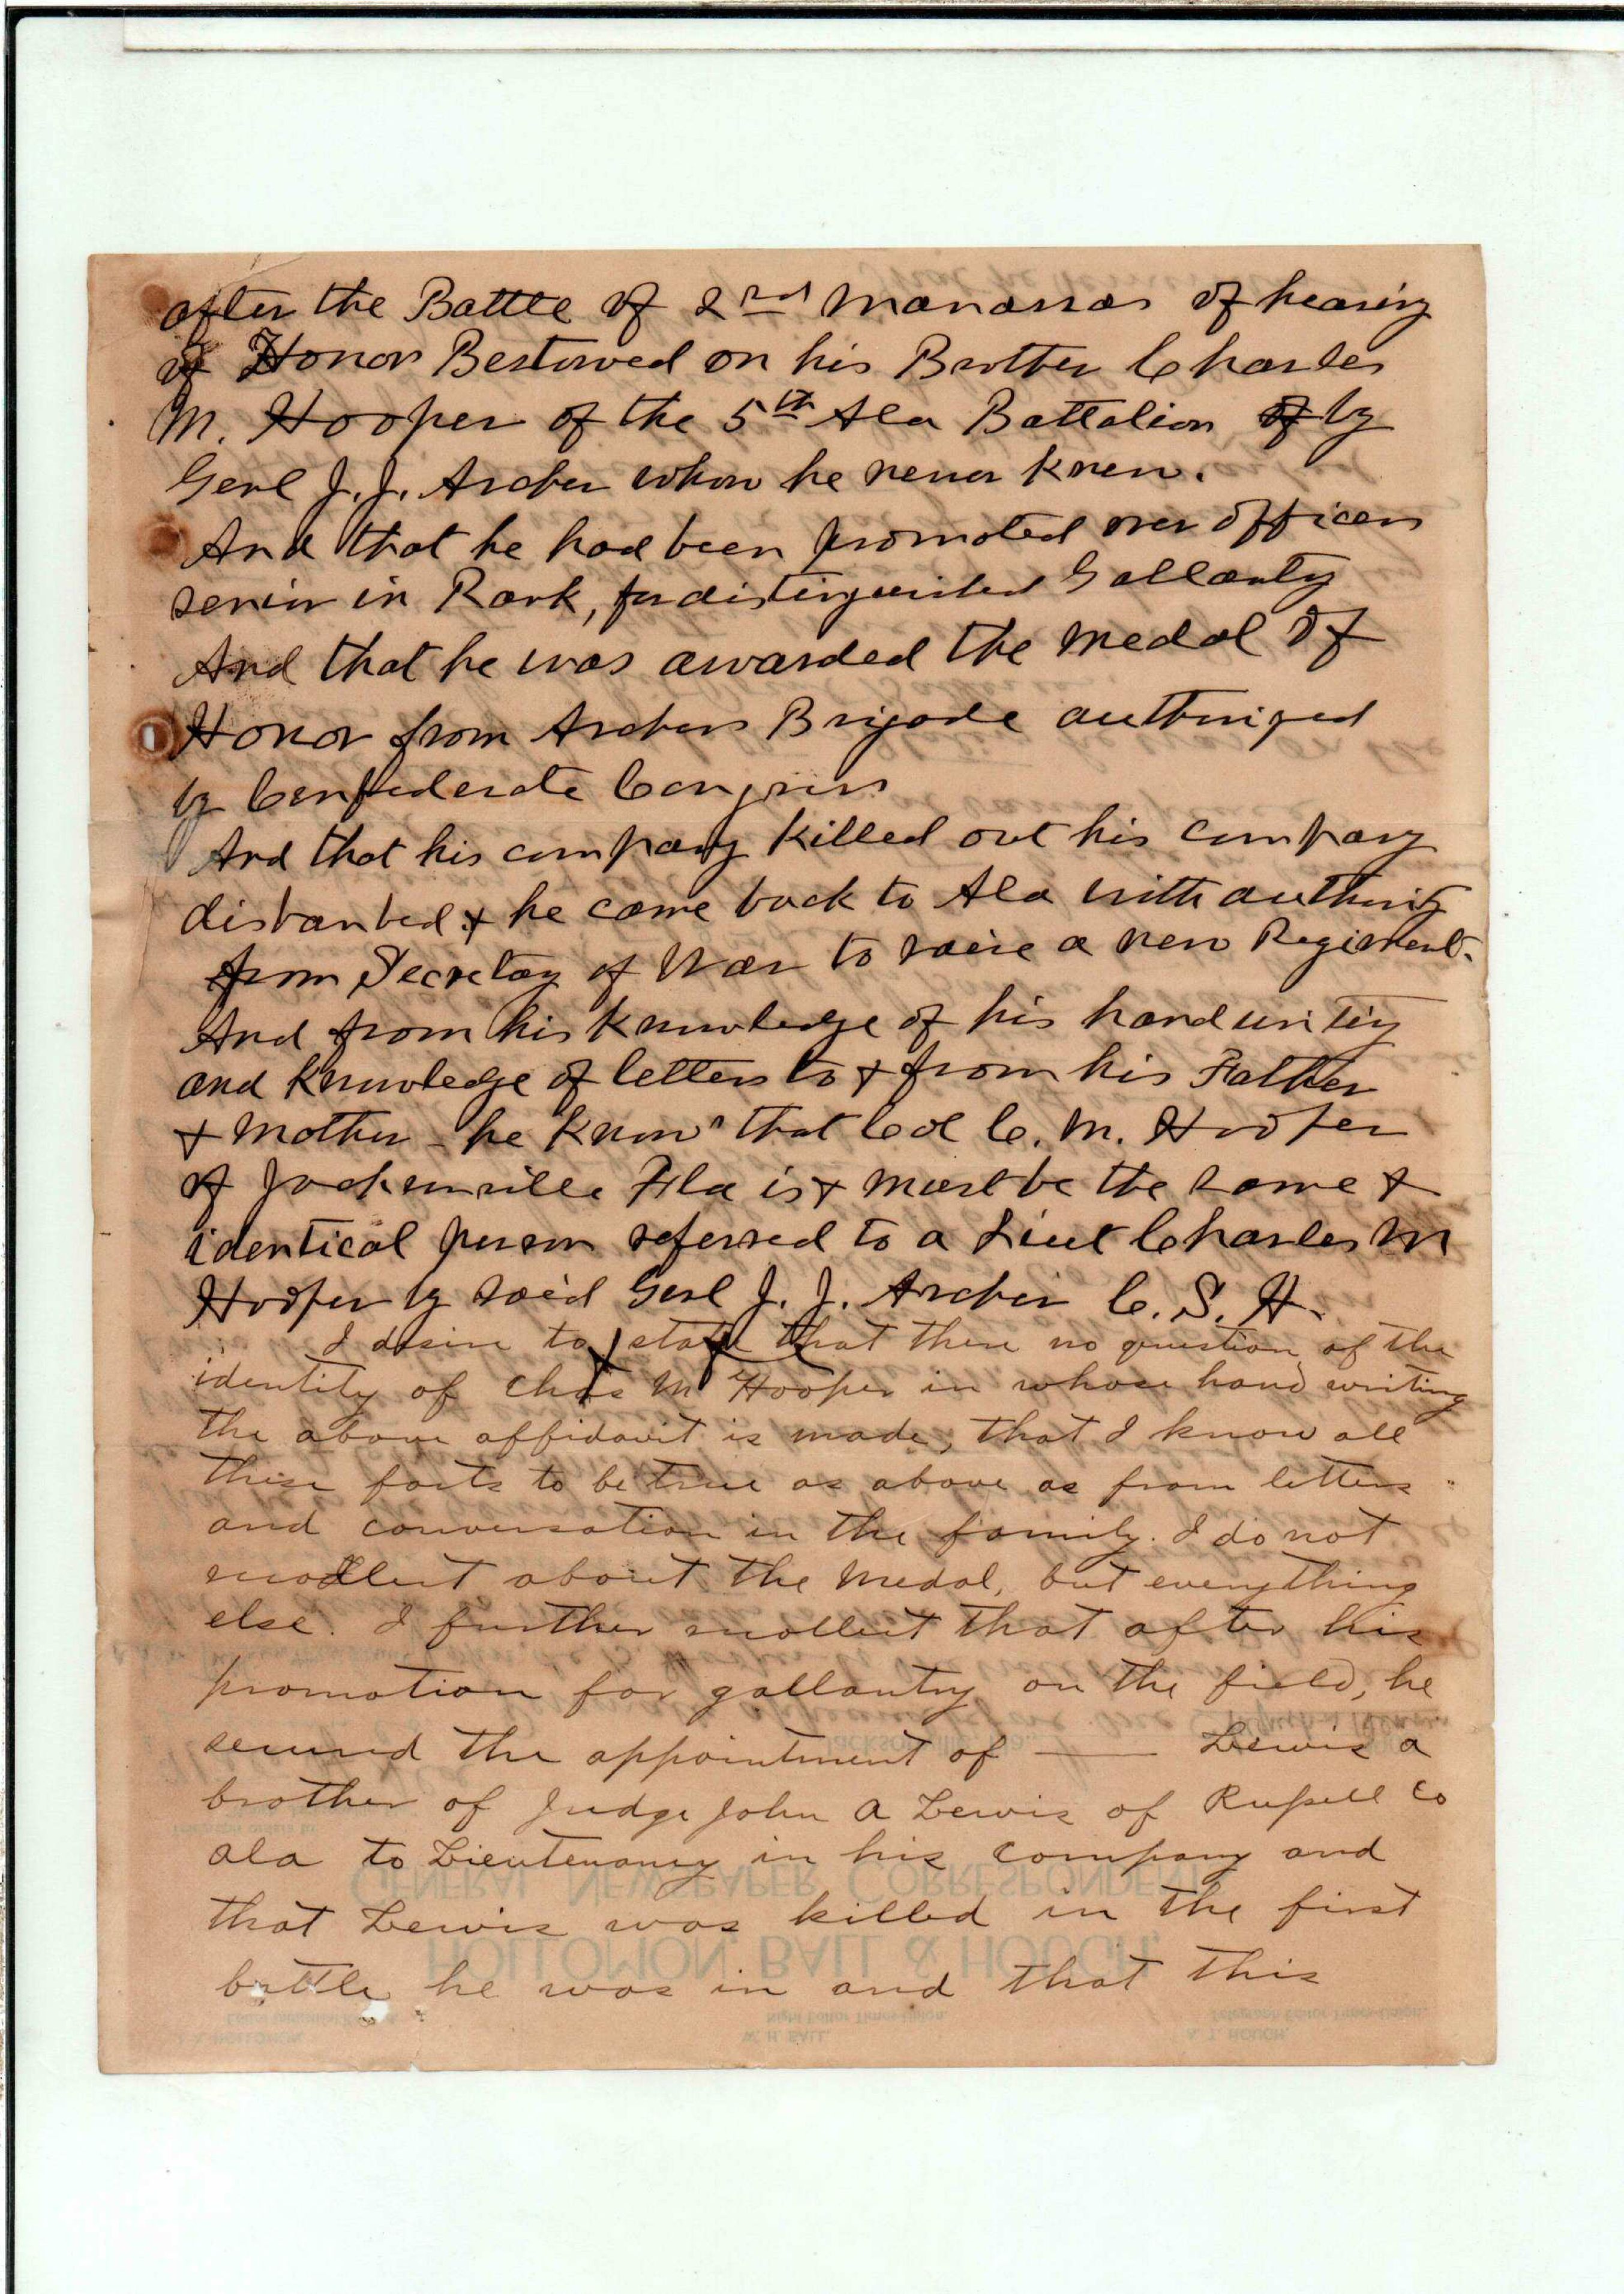 after the Battle of 2nd Manassas of hearing
of Honor Bestowed on his Brother Charles
M. Hooper of the 5th Ala Battalion of by
Genl J. J. Archer whom he never knew.
And that he had been promoted over officers
senior in Rank, for distinguished Gallantry
And that he was awarded the medal of
Honor from Archers Brigade authorized
by Confederate Congress
And that his company killed out his company
disbanded & he came back to Ala with authority
from Secretary of War to raise a new Regiment.
And from his Knowledge of his handwriting
and Knowledge of letters to & from his Father
& Mother - he Knows that Col C. M. Hooper
of Jacksonville Fla is & must be the same &
identical person referred to a Lieut Charles M
Hooper by said Genl J. J. Archer C. S. A.
I desire to state that there no question of the
identity of Chas M Hooper in whose hand writing
the above affidavit is made, that I know all
these facts to be true as above as from letters
and conversation in the family. I do not
recollect about the Medal, but everything
else. I further recollect that after his
promotion for gallantry on the field, he
secured the appointment of —— Lewis a
brother of Judge John A Lewis of Russell Co
ala to Lieutenancy in his Company and
that Lewis was killed in the first
battle he was in and that this
GENERAL NEWSPAPER CORRESPONDENTS
HOLLOMON, BALL & HOUGH,
Night Editor Times-Union.
Telegraph Editor Times-Union.
W. H. BALL.
A. T. HOUGH.